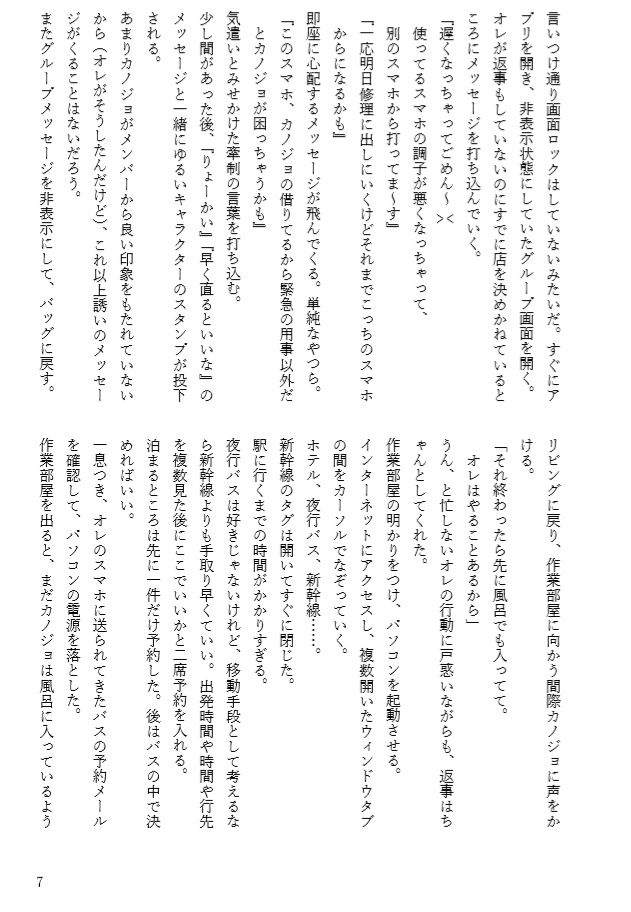 言いつけ通り画面ロックはしていないみたいだ。すぐにア
プリを開き、非表示状態にしていたグループ画面を開く。
オレが返事もしていないのにすでに店を決めかねていると
ころにメッセージを打ち込んでいく。
『遅くなっちゃってごめん〜 ><
使ってるスマホの調子が悪くなっちゃって、
別のスマホから打ってま〜す』
『一応明日修理に出しにいくけどそれまでこっちのスマホ
からになるかも』
即座に心配するメッセージが飛んでくる。単純なやつら。
『このスマホ、カノジョの借りてるから緊急の用事以外だ
とカノジョが困っちゃうかも』
気遣いとみせかけた牽制の言葉を打ち込む。
少し間があった後、『りょーかい』『早く直るといいな』の
メッセージと一緒にゆるいキャラクターのスタンプが投下
される。
あまりカノジョがメンバーから良い印象をもたれていない
から（オレがそうしたんだけど）、これ以上誘いのメッセー
ジがくることはないだろう。
またグループメッセージを非表示にして、バッグに戻す。
リビングに戻り、作業部屋に向かう間際カノジョに声をか
ける。
「それ終わったら先に風呂でも入ってて。
オレはやることあるから」
うん、と忙しないオレの行動に戸惑いながらも、返事はち
ゃんとしてくれた。
作業部屋の明かりをつけ、パソコンを起動させる。
インターネットにアクセスし、複数開いたウィンドウタブ
の間をカーソルでなぞっていく。
ホテル、夜行バス、新幹線……。
新幹線のタグは開いてすぐに閉じた。
駅に行くまでの時間がかかりすぎる。
夜行バスは好きじゃないけれど、移動手段として考えるな
ら新幹線よりも手取り早くていい。出発時間や時間や行先
を複数見た後にここでいいかと二席予約を入れる。
泊まるところは先に一件だけ予約した。後はバスの中で決
めればいい。
一息つき、オレのスマホに送られてきたバスの予約メール
を確認して、パソコンの電源を落とした。
作業部屋を出ると、まだカノジョは風呂に入っているよう
7